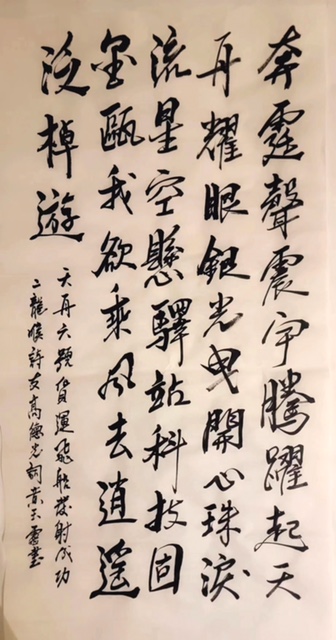 奔霆聲震宇騰躍起天
舟耀眼銀光曳開心珠淚
流星空懸驛站科技固
金甌我欲乘風去逍遙
泛棹遊
天舟六號貨運飛船發射成功
二龍喉詩友高德光詞書